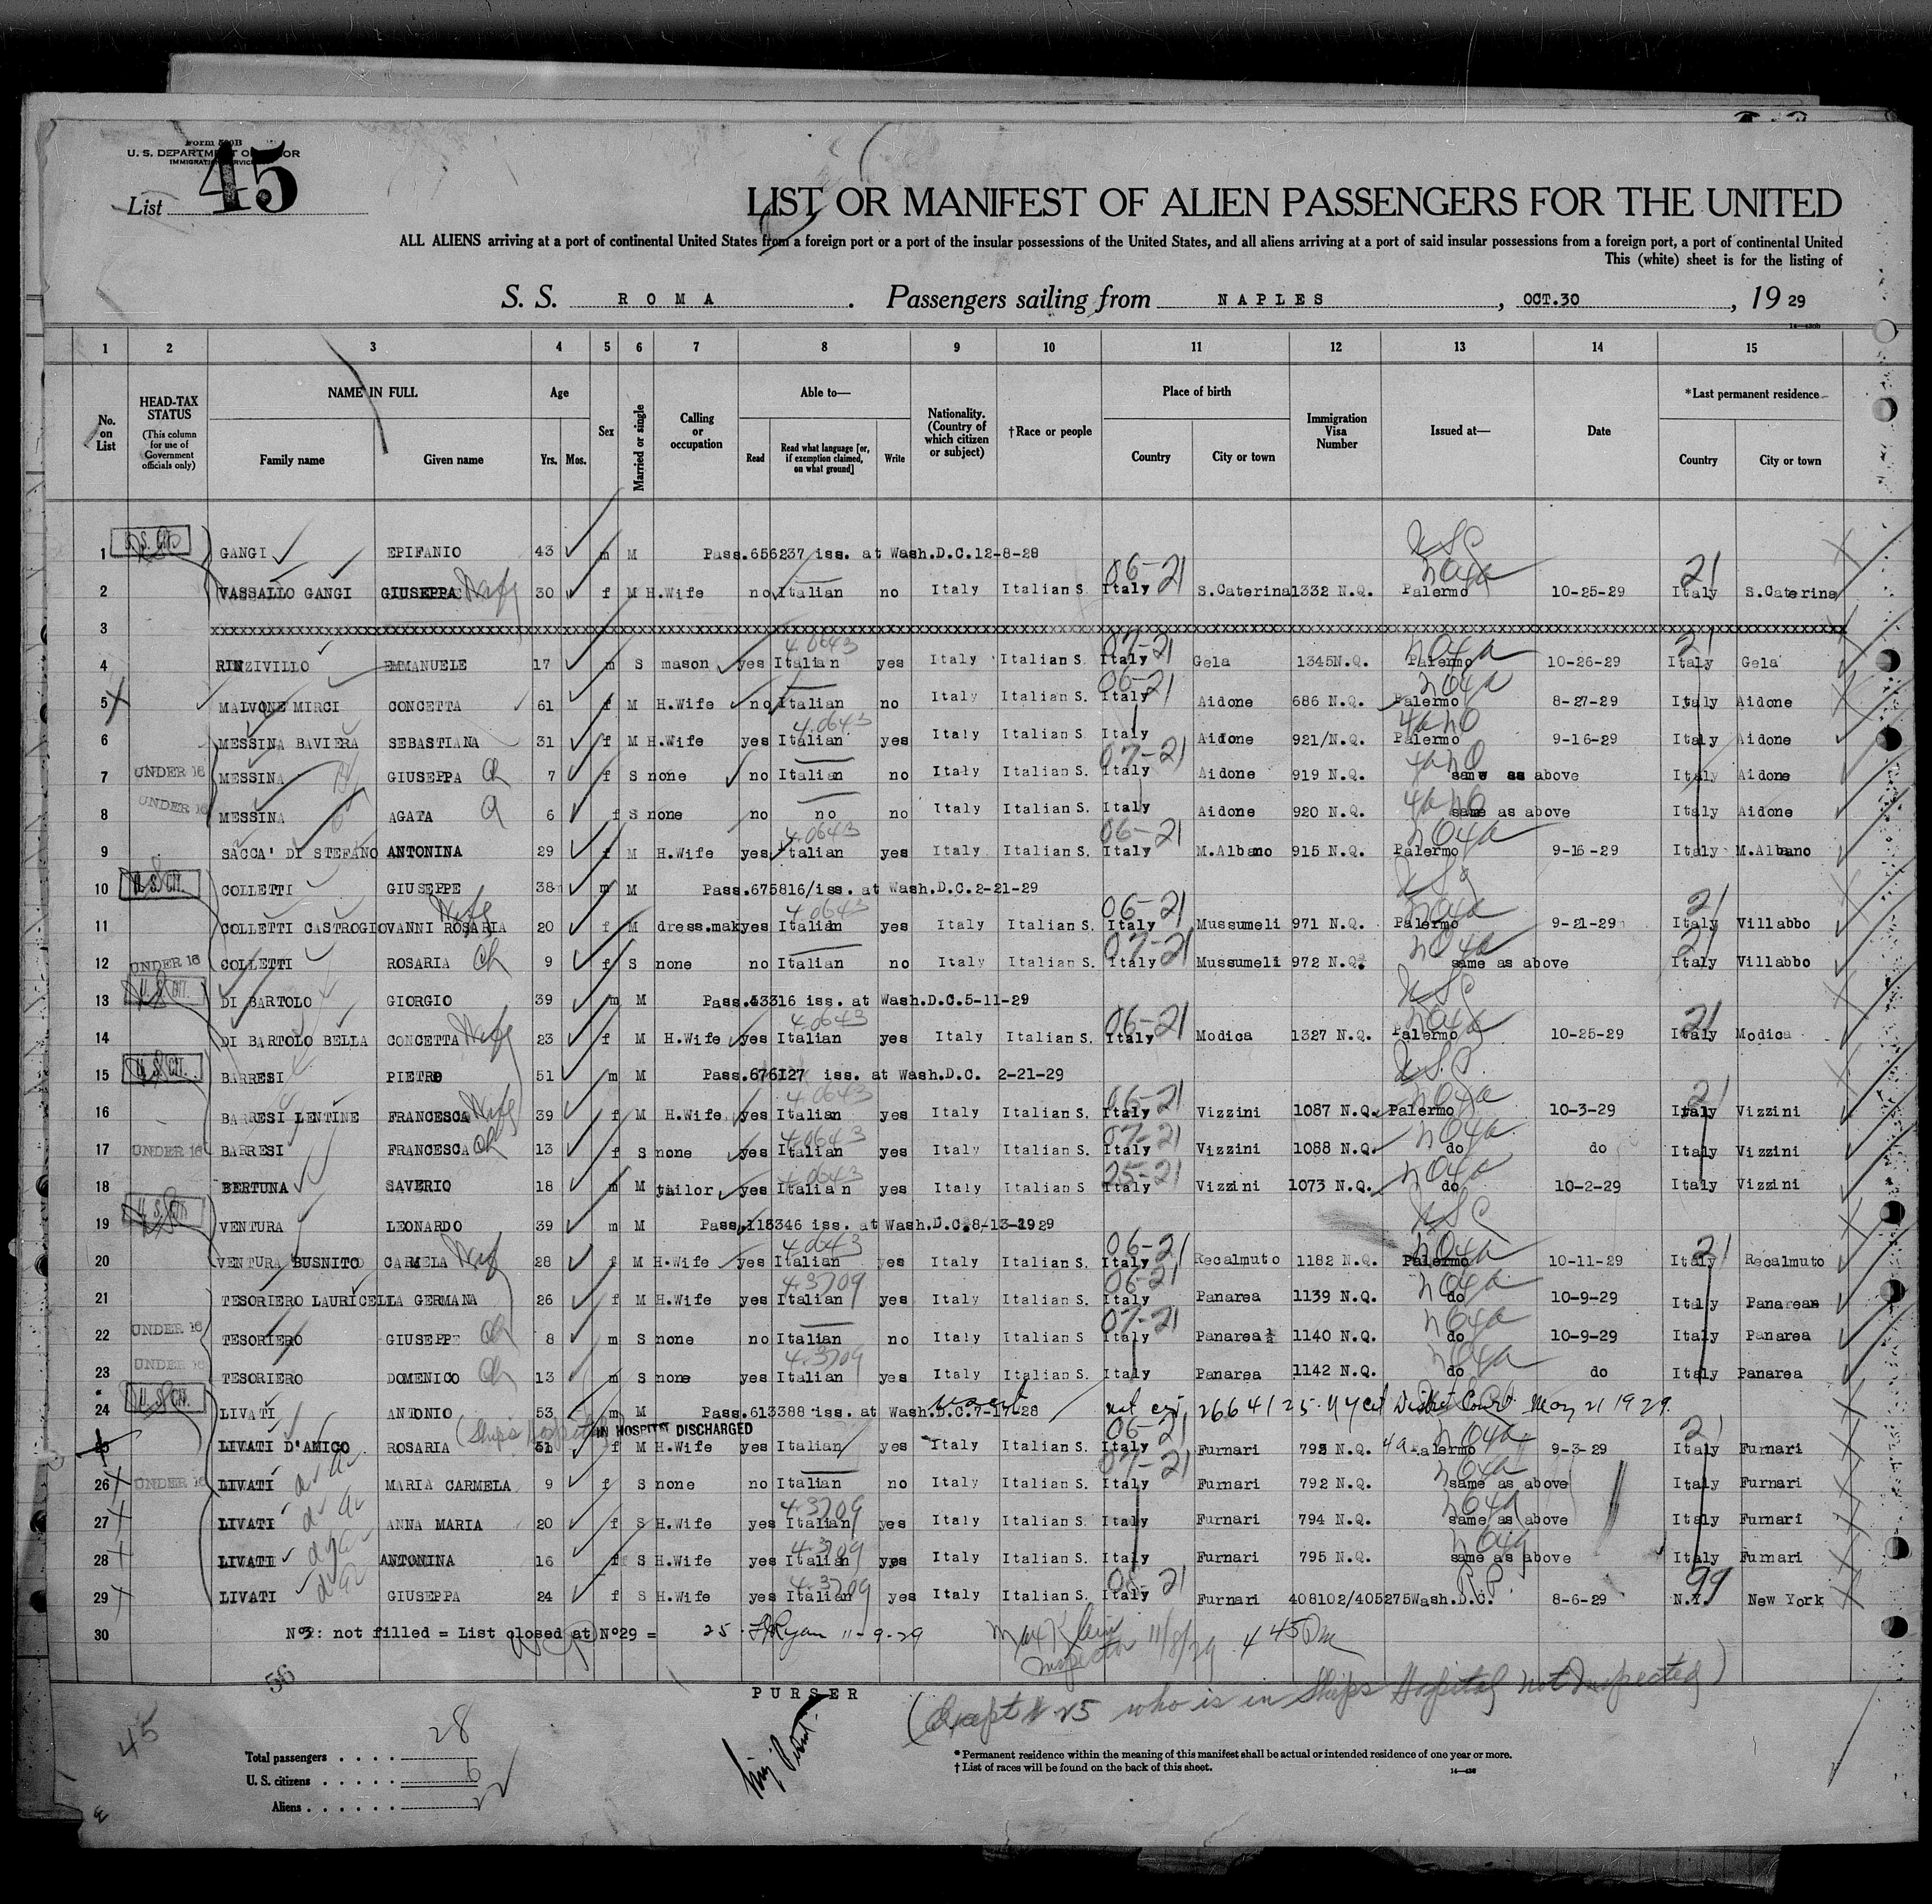 Form 500B
U. S. DEPARTMENT OF LABOR
IMMIGRATION SERVICE
List 45
LIST OR MANIFEST OF ALIEN PASSENGERS FOR THE UNITED
ALL ALIENS arriving at a port of continental United States from a foreign port or a port of the insular possessions of the United States, and all aliens arriving at a port of said insular possessions from a foreign port, a port of continental United
This (white) sheet is for the listing of
S. S. ROMA. Passengers sailing from NAPLES, OCT.30, 19 29
1 2 3 4 5 6 7 8 9 10 11 12 13 14 15
No. on List
HEAD-TAX STATUS (This column for use of Government officials only)
NAME IN FULL
Family name Given name
Age
Yrs. Mos.
Sex
Married or single
Calling or occupation
Able to—
Read Read what language [or, if exemption claimed, on what ground] Write
Nationality. (Country of which citizen or subject)
†Race or people
Place of birth
Country City or town
Immigration Visa Number
Issued at—
Date
*Last permanent residence
Country City or town
1 U.S. CIT. GANGI EPIFANIO 43 m M Pass.656237 iss. at Wash.D.C.12-8-28 USC
2 VASSALLO GANGI GIUSEPPA Wife 30 f M H.Wife no Italian no Italy Italian S. Italy 06-21 S.Caterina 1332 N.Q. Palermo 10-25-29 Italy 21 S.Caterina
3 xxxxxxxxxxxxxxxxxxxx
4 RINZIVILLO EMMANUELE 17 m S mason yes Italian yes Italy Italian S. Italy 07-21 Gela 1345N.Q. Palermo 10-26-29 Italy 21 Gela
5 MALVONE MIRCI CONCETTA 61 f M H.Wife no Italian no Italy Italian S. Italy 06-21 Aidone 686 N.Q. Palermo 8-27-29 Italy Aidone
6 MESSINA BAVIERA SEBASTIANA 31 f M H.Wife yes Italian yes Italy Italian S. Italy Aidone 921/N.Q. Palermo 9-16-29 Italy Aidone
7 UNDER 16 MESSINA GIUSEPPA Ch 7 f S none no Italian no Italy Italian S. Italy 07-21 Aidone 919 N.Q. same as above Italy Aidone
8 UNDER 16 MESSINA AGATA 6 f S none no no no Italy Italian S. Italy Aidone 920 N.Q. same as above Italy Aidone
9 SACCA' DI STEFANO ANTONINA 29 f M H.Wife yes Italian yes Italy Italian S. Italy 06-21 M.Albano 915 N.Q. Palermo 9-16-29 Italy M.Albano
10 U.S. CIT. COLLETTI GIUSEPPE 38 m M Pass.675816/iss. at Wash.D.C.2-21-29
11 COLLETTI CASTROGIOVANNI ROSARIA Wife 20 f M dress.mak yes Italian yes Italy Italian S. Italy 06-21 Mussumeli 971 N.Q. Palermo 9-21-29 Italy 21 Villabbo
12 UNDER 16 COLLETTI ROSARIA Ch 9 f S none no Italian no Italy Italian S. Italy 07-21 Mussumeli 972 N.Q. same as above Italy 21 Villabbo
13 U.S. CIT. DI BARTOLO GIORGIO 39 m M Pass.43316 iss. at Wash.D.C.5-11-29 USC
14 DI BARTOLO BELLA CONCETTA Wife 23 f M H.Wife yes Italian yes Italy Italian S. Italy 06-21 Modica 1327 N.Q. Palermo 10-25-29 Italy 21 Modica
15 U.S. CIT. BARRESI PIETRO 51 m M Pass.676127 iss. at Wash.D.C. 2-21-29 U.S.C.
16 BARRESI LENTINE FRANCESCA Wife 39 f M H.Wife yes Italian yes Italy Italian S. Italy 06-21 Vizzini 1087 N.Q. Palermo 10-3-29 Italy 21 Vizzini
17 UNDER 16 BARRESI FRANCESCA Ch 13 f S none yes Italian yes Italy Italian S. Italy 07-21 Vizzini 1088 N.Q. do do Italy Vizzini
18 BERTUNA SAVERIO 18 m M tailor yes Italian yes Italy Italian S Italy 25-21 Vizzini 1073 N.Q. do 10-2-29 Italy Vizzini
19 U.S. CIT. VENTURA LEONARDO 39 m M Pass.118346 iss. at Wash.D.C.8-13-1929 USC
20 VENTURA BUSNITO CARMELA Wife 28 f M H.Wife yes Italian yes Italy Italian S. Italy 06-21 Recalmuto 1182 N.Q. Palermo 10-11-29 Italy 21 Recalmuto
21 TESORIERO LAURICELLA GERMANA 26 f M H.Wife yes Italian yes Italy Italian S. Italy 06-21 Panarea 1139 N.Q. do 10-9-29 Italy Panarea
22 UNDER 16 TESORIERO GIUSEPPE Ch 8 m S none no Italian no Italy Italian S Italy 07-21 Panarea 1140 N.Q. do 10-9-29 Italy Panarea
23 UNDER 16 TESORIERO DOMENICO Ch 13 m S none yes Italian yes Italy Italian S. Italy Panarea 1142 N.Q. do do Italy Panarea
24 U.S. CIT. LIVATI ANTONIO 53 m M Pass.613388 iss. at Wash.D.C.7-17-28 26641 25. N Y cit District Court May 21 1929
25 LIVATI D'AMICO ROSARIA (Ships Hospital) IN HOSPITAL DISCHARGED 51 f M H.Wife yes Italian yes Italy Italian S. Italy 06-21 Furnari 793 N.Q. Palermo 9-3-29 Italy 21 Furnari
26 UNDER 16 LIVATI MARIA CARMELA 9 f S none no Italian no Italy Italian S. Italy 07-21 Furnari 792 N.Q. same as above Italy Furnari
27 LIVATI ANNA MARIA 20 f S H.Wife yes Italian yes Italy Italian S. Italy Furnari 794 N.Q. same as above Italy Furnari
28 LIVATI ANTONINA 16 f S H.Wife yes Italian yes Italy Italian S. Italy Furnari 795 N.Q. same as above Italy Furnari
29 LIVATI GIUSEPPA 24 f S H.Wife yes Italian yes Italy Italian S. Italy 06-21 Furnari 408102/405275 Wash.D.C. R.P. 8-6-29 N.Y. 99 New York
30 Nº3: not filled = List closed at Nº29 = 25 Ryan 11-9-29 Max Klein Inspector 11/8/29 4 45 Pm
56
PURSER
(Except # 25 who is in Ships Hospital not Inspected)
45
Total passengers . . . . 28
U. S. citizens . . . . . 6
Aliens . . . . . . 22
* Permanent residence within the meaning of this manifest shall be actual or intended residence of one year or more.
† List of races will be found on the back of this sheet.